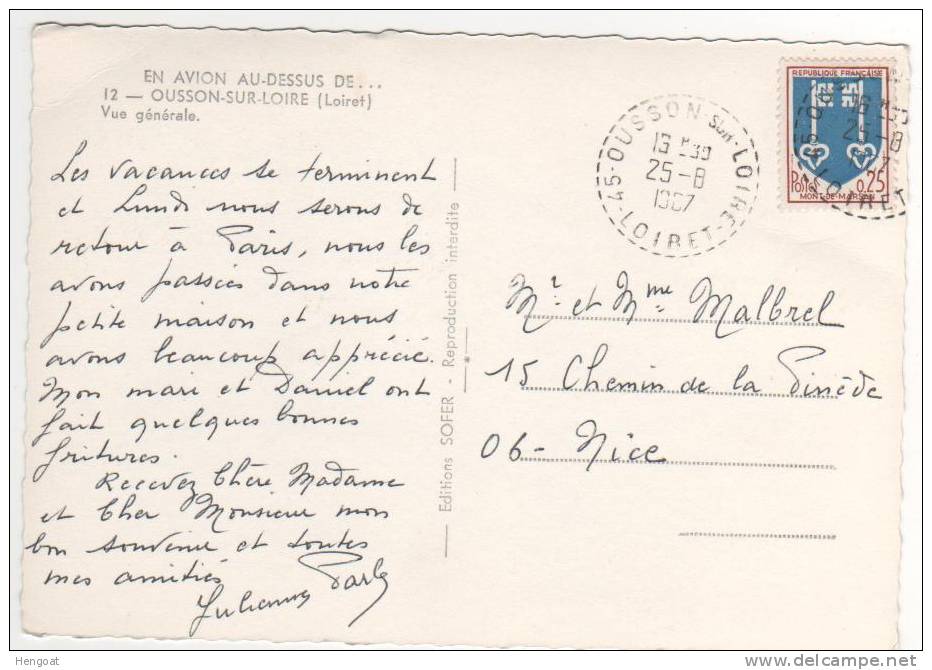 EN AVION AU-DESSUS DE...
12 — OUSSON-SUR-LOIRE (Loiret)
Vue générale.
Les vacances se terminent
et Lundi nous serons de
retour à Paris, nous les
avons passées dans notre
petite maison et nous
avons beaucoup apprécié.
Mon mari et Daniel ont
fait quelques bonnes
fritures.
Recevez Chère Madame
et Cher Monsieur mon
bon souvenir et toutes
mes amitiés
Editions SOFER - Reproduction interdite
45-OUSSON SUR-LOIRE
13 H30
25-8
1967
LOIRET
REPUBLIQUE FRANÇAISE
Postes 0,25
MONT-DE-MARSAN
LOIRET
25-8
Mr et Mme Malbrel
15 Chemin de la Pinède
06 - Nice
Hengoat
www.delcampe.net